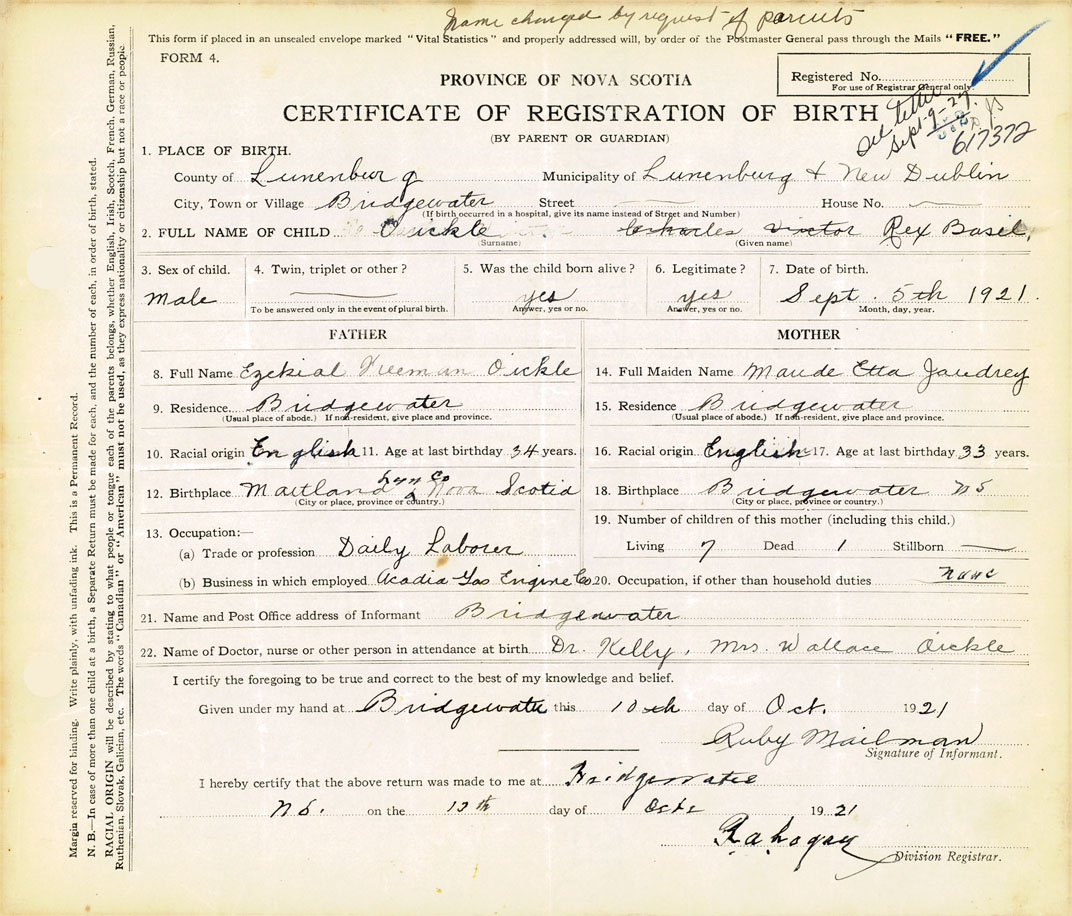 Name changed by request of parents
This form if placed in an unsealed envelope marked "Vital Statistics" and properly addressed will, by order of the Postmaster General pass through the Mails "FREE."
FORM 4.
Registered No.
For use of Registrar General only.
PROVINCE OF NOVA SCOTIA
CERTIFICATE OF REGISTRATION OF BIRTH
See letter
Sept-9-29
617372
(BY PARENT OR GUARDIAN)
1. PLACE OF BIRTH.
County of Lunenburg Municipality of Lunenburg & New Dublin
City, Town or Village Bridgewater Street House No.
(If birth occurred in a hospital, give its name instead of Street and Number)
2. FULL NAME OF CHILD Oickle Charles Victor Rex Basil,
(Surname) (Given name)
3. Sex of child. 4. Twin, triplet or other? 5. Was the child born alive? 6. Legitimate? 7. Date of birth.
Male yes yes Sept. 5th 1921.
To be answered only in the event of plural birth. Answer, yes or no. Answer, yes or no. Month, day, year.
FATHER MOTHER
8. Full Name Ezekial Freeman Oickle 14. Full Maiden Name Maude Etta Jaudrey
9. Residence Bridgewater 15. Residence Bridgewater
(Usual place of abode.) If non-resident, give place and province. (Usual place of abode.) If non-resident, give place and province.
10. Racial origin English 11. Age at last birthday 34 years. 16. Racial origin English 17. Age at last birthday 33 years.
Lun Co
12. Birthplace Maitland Nova Scotia 18. Birthplace Bridgewater NS
(City or place, province or country.) (City or place, province or country.)
13. Occupation:— 19. Number of children of this mother (including this child.)
(a) Trade or profession Daily Laborer Living 7 Dead 1 Stillborn
(b) Business in which employed Acadia Gas Engine Co. 20. Occupation, if other than household duties none
21. Name and Post Office address of Informant Bridgewater
22. Name of Doctor, nurse or other person in attendance at birth Dr. Kelly, Mrs. Wallace Oickle
I certify the foregoing to be true and correct to the best of my knowledge and belief.
Given under my hand at Bridgewater this 10th day of Oct. 1921
Ruby Mailman
Signature of Informant.
I hereby certify that the above return was made to me at Bridgewater
N.S. on the 12th day of Oct 1921
Division Registrar.
Margin reserved for binding. Write plainly, with unfading ink. This is a Permanent Record.
N. B.—In case of more than one child at a birth, a Separate Return must be made for each, and the number of each, in order of birth, stated.
RACIAL ORIGIN will be described by stating to what people or tongue each of the parents belongs, whether English, Irish, Scotch, French, German, Russian,
Ruthenian, Slovak, Galician, etc. The words "Canadian" or "American" must not be used, as they express nationality or citizenship but not a race or people.